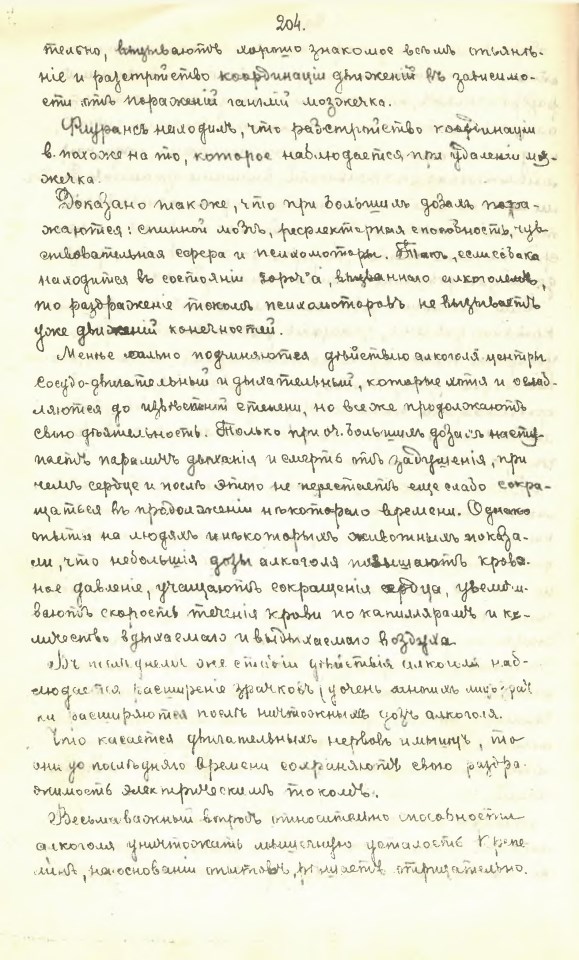 204.
тельно, вызываютъ хорошо знакомое всѣмъ опьянѣ-
ніе и разстройство координаціи движеній въ зависимо-
сти отъ пораженій ганглій мозжечка.
Флурансъ находилъ, что разстройство координаціи
в. похоже на то, которое наблюдается при удаленіи моз-
жечка.
Доказано также, что при большихъ дозахъ пора-
жаются: спинной мозгъ, рефлекторная способность, чув-
ствовательная сфера и психомоторы. Такъ, если собака
находится въ состояніи вызваннаго алкоголемъ,
то раздраженіе токомъ психомоторовъ не вызываетъ
уже движеній конечностей.
Менѣе сильно подчиняются дѣйствію алкоголя центры
сосудо-двигательный и дыхательный, которые хотя и ослаб-
ляются до извѣстной степени, но все же продолжаютъ
свою дѣятельность. Только при оч. большихъ дозахъ насту-
паетъ параличъ дыханія и смерть отъ задушенія, при
чемъ сердце и послѣ этого не перестаетъ еще слабо сокра-
щаться въ продолженіи нѣкотораго времени. Однако
опыты на людяхъ и нѣкоторыхъ животныхъ показа-
ли, что небольшія дозы алкоголя повышаютъ кровя-
ное давленіе, учащаютъ сокращенія сердца, увеличи-
ваютъ скорость теченія крови по капиллярамъ и ко-
личество вдыхаемаго и выдыхаемаго воздуха.
Въ послѣднемъ же стадіи дѣйствія алкоголя наб-
людается расширеніе зрачковъ (у очень многихъ лицъ зрач
ки расширяются послѣ ничтожныхъ дозъ алкоголя.
Что касается двигательныхъ нервовъ и мышцъ, то
они до послѣдняго времени сохраняютъ свою раздра-
жимость электрическимъ токомъ.
Весьма важный вопросъ относительно способности
алкоголя уничтожать мышечную усталость Крепе-
линъ, на основаніи опытовъ, рѣшаетъ отрицательно.